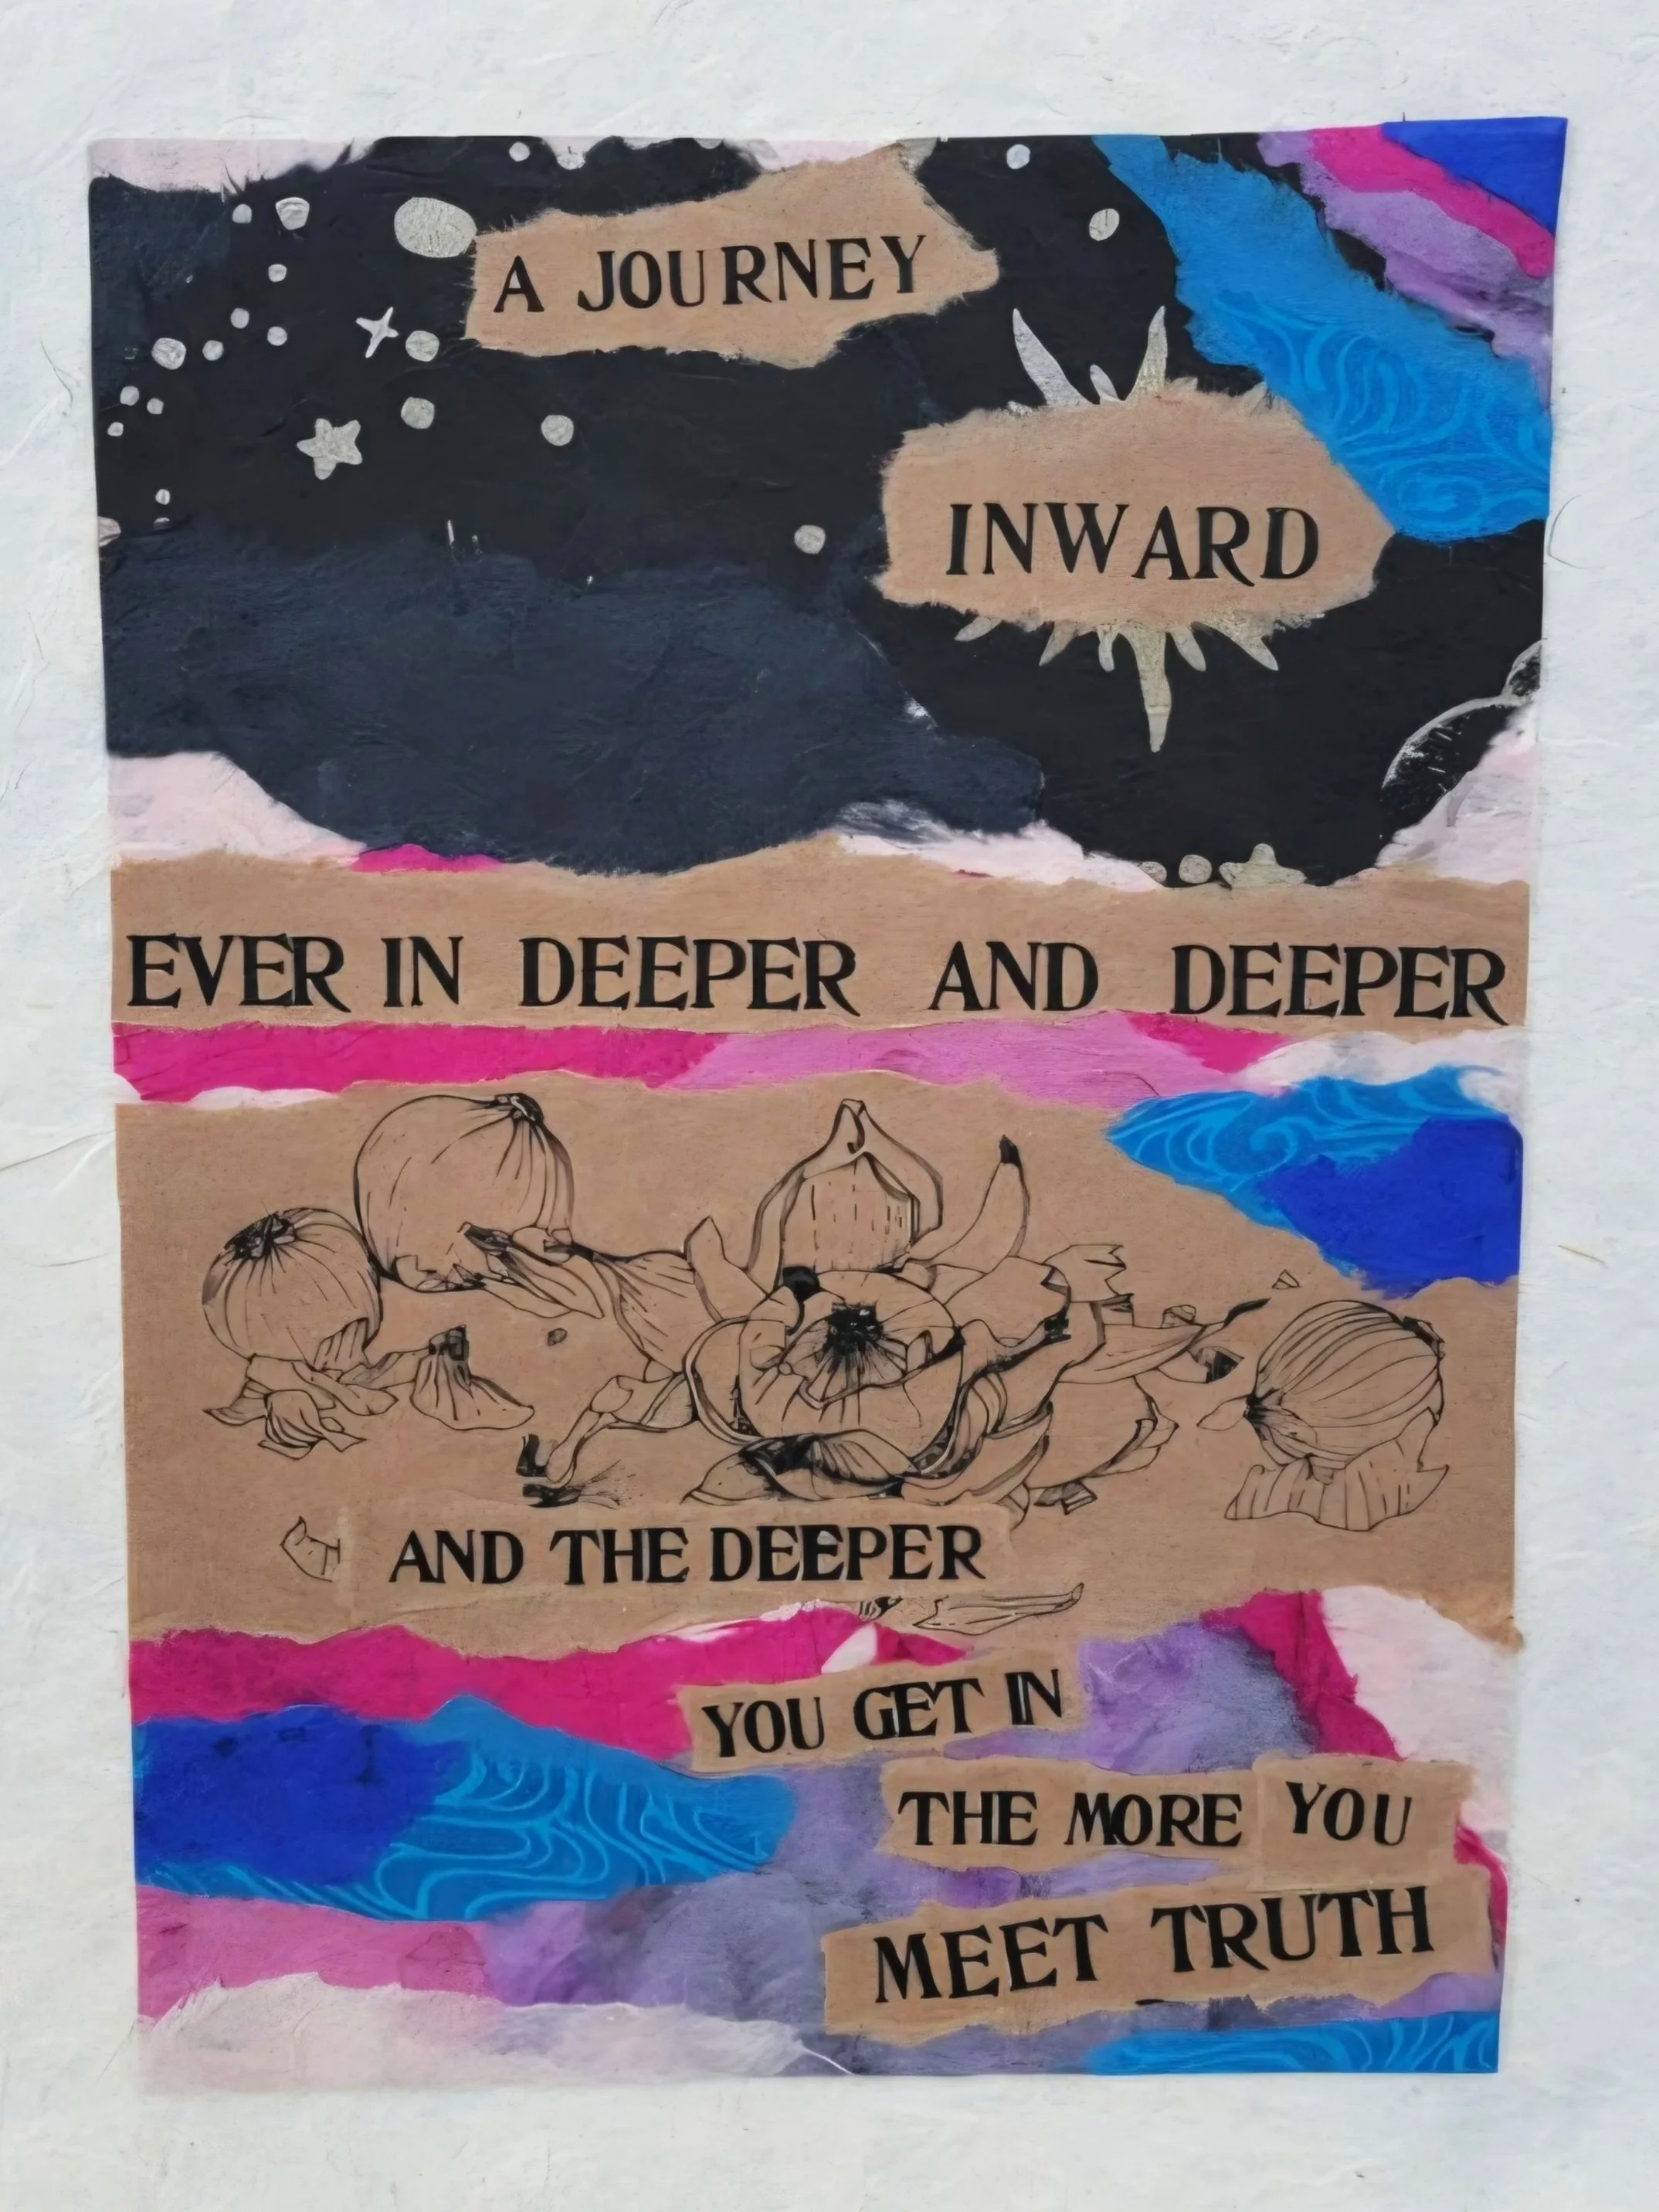 A JOURNEY
INWARD
EVER IN DEEPER AND DEEPER
AND THE DEEPER
YOU GET IN
THE MORE YOU
MEET TRUTH